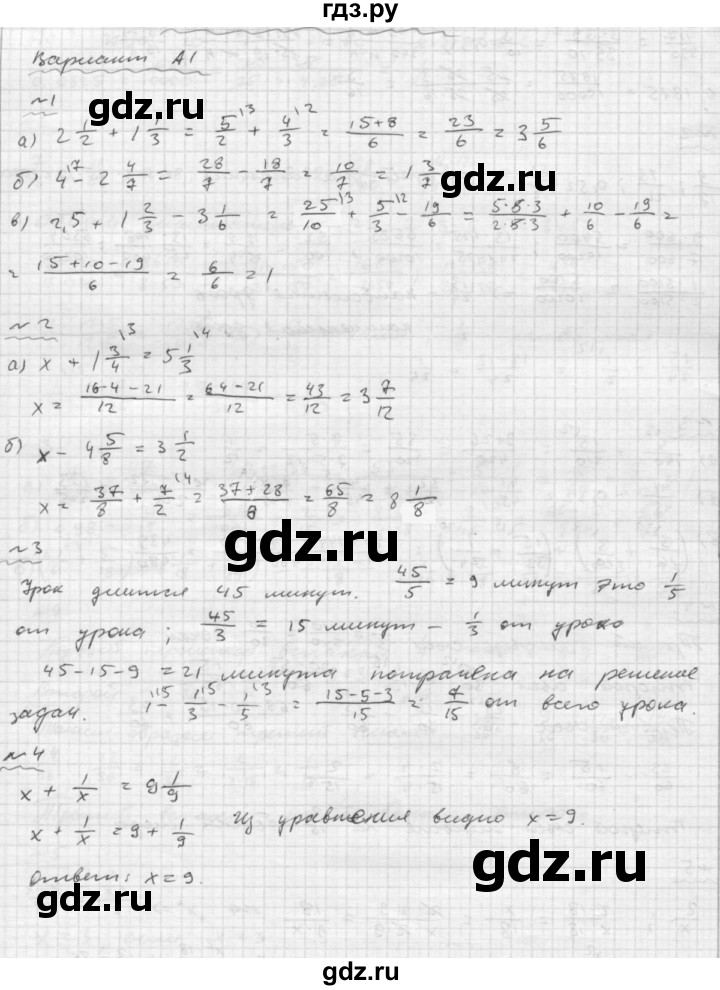 гдз.ру
Вариант А1
№1
а) 2 1/2 + 1 1/3 = 5/2 \3 + 4/3 \2 = (15+8)/6 = 23/6 = 3 5/6
б) 4 \7 - 2 4/7 = 28/7 - 18/7 = 10/7 = 1 3/7
в) 2,5 + 1 2/3 - 3 1/6 = 25/10 \3 + 5/3 \2 - 19/6 = (5·5·3)/(2·5·3) + 10/6 - 19/6 =
= (15+10-19)/6 = 6/6 = 1
№2
а) x + 1 3/4 \3 = 5 1/3 \4
x = (16·4-21)/12 = (64-21)/12 = 43/12 = 3 7/12
б) x - 4 5/8 = 3 1/2
x = 37/8 + 7/2 \4 = (37+28)/8 = 65/8 = 8 1/8
№3
Урок длится 45 минут. 45/5 = 9 минут это 1/5
от урока; 45/3 = 15 минут - 1/3 от урока
45-15-9 = 21 минута потрачена на решение
задач. 1 \15 - 1/3 \5 - 1/5 \3 = (15-5-3)/15 = 7/15 от всего урока.
№4
x + 1/x = 9 1/9
x + 1/x = 9 + 1/9 Из уравнения видно x = 9.
Ответ: x = 9.
gdz.ru
gdz.ru
gdz.ru
gdz.ru
gdz.ru
gdz.ru
gdz.ru
gdz.ru